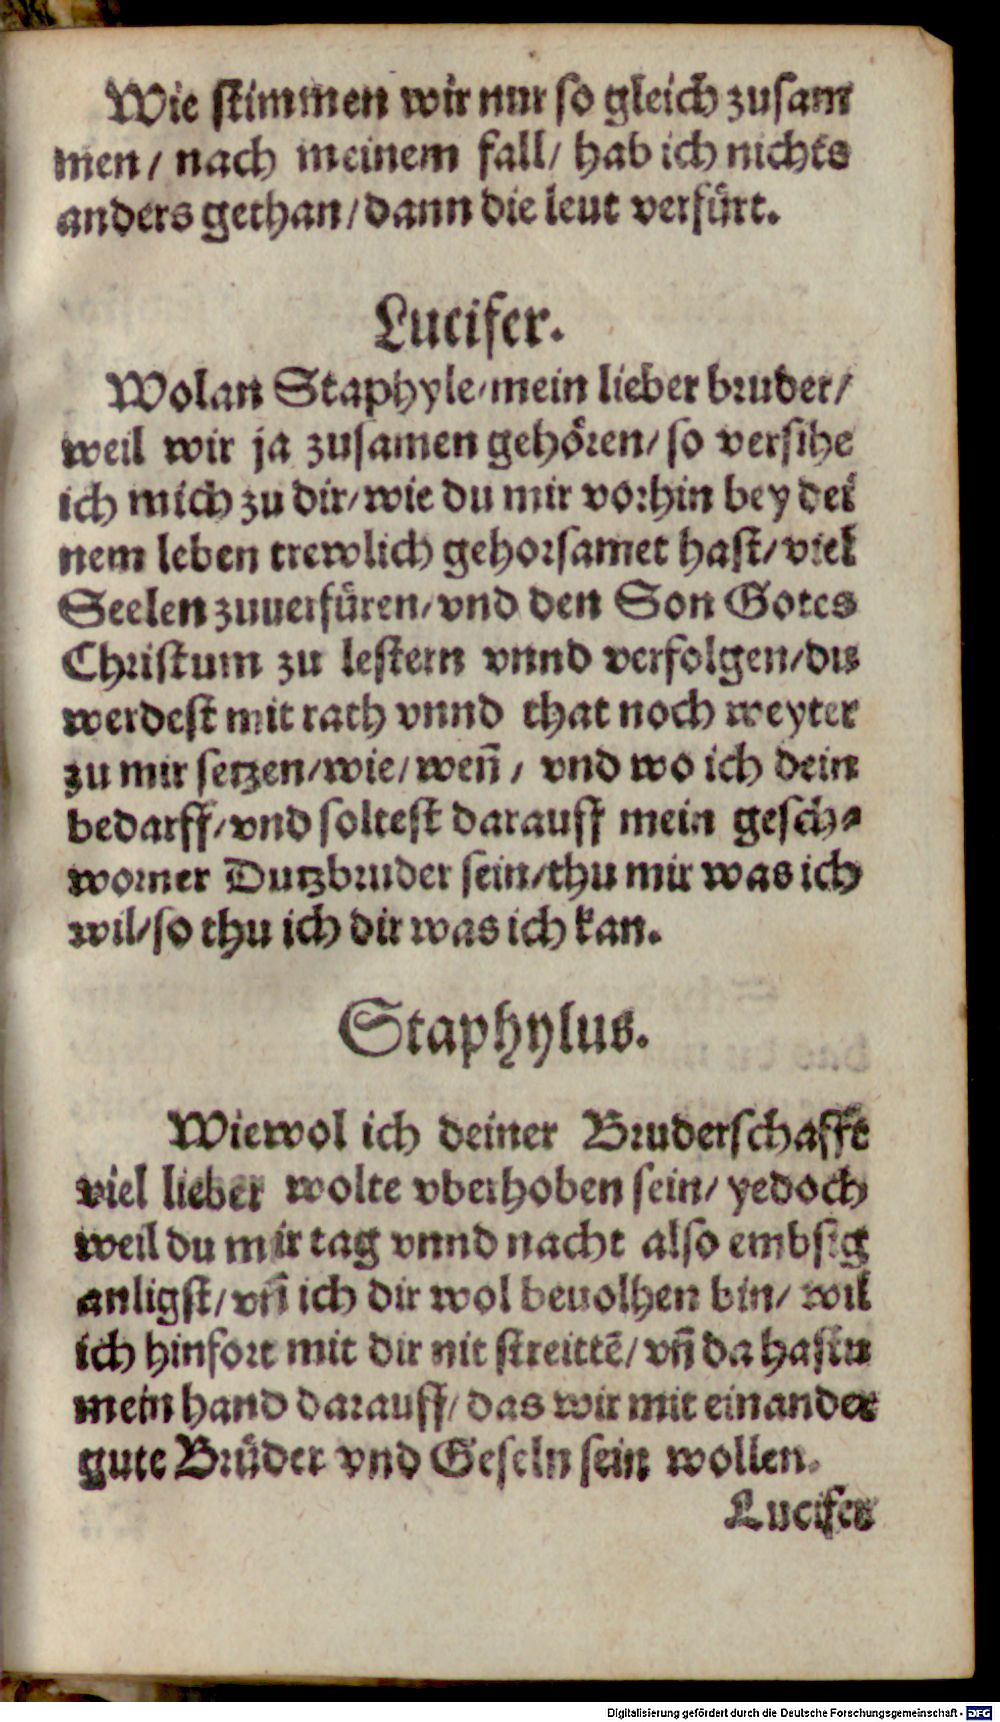 Wie stimmen wir nur so gleich zusam
men / nach meinem fall / hab ich nichts
anders gethan / dann die leut verfürt.
Lucifer.
Wolan Staphyle / mein lieber bruder /
weil wir ja zusamen gehören / so versihe
ich mich zu dir / wie du mir vorhin bey dei
nem leben trewlich gehorsamet hast / viel
Seelen zuuerfüren / vnd den Son Gotes
Christum zu lestern vnnd verfolgen / du
werdest mit rath vnnd that noch weyter
zu mir setzen / wie / weñ / vnd wo ich dein
bedarff / vnd soltest darauff mein gesch⸗
worner Dutzbruder sein / thu mir was ich
wil / so thu ich dir was ich kan.
Staphylus.
Wiewol ich deiner Bruderschafft
viel lieber wolte vberhoben sein / yedoch
weil du mir tag vnnd nacht also embsig
anligst / vñ ich dir wol beuolhen bin / wil
ich hinfort mit dir nit streittē / vñ da hastu
mein hand darauff / das wir mit einander
gute Brüder vnd Geseln sein wollen.
Lucifer
Digitalisierung gefördert durch die Deutsche Forschungsgemeinschaft - DFG